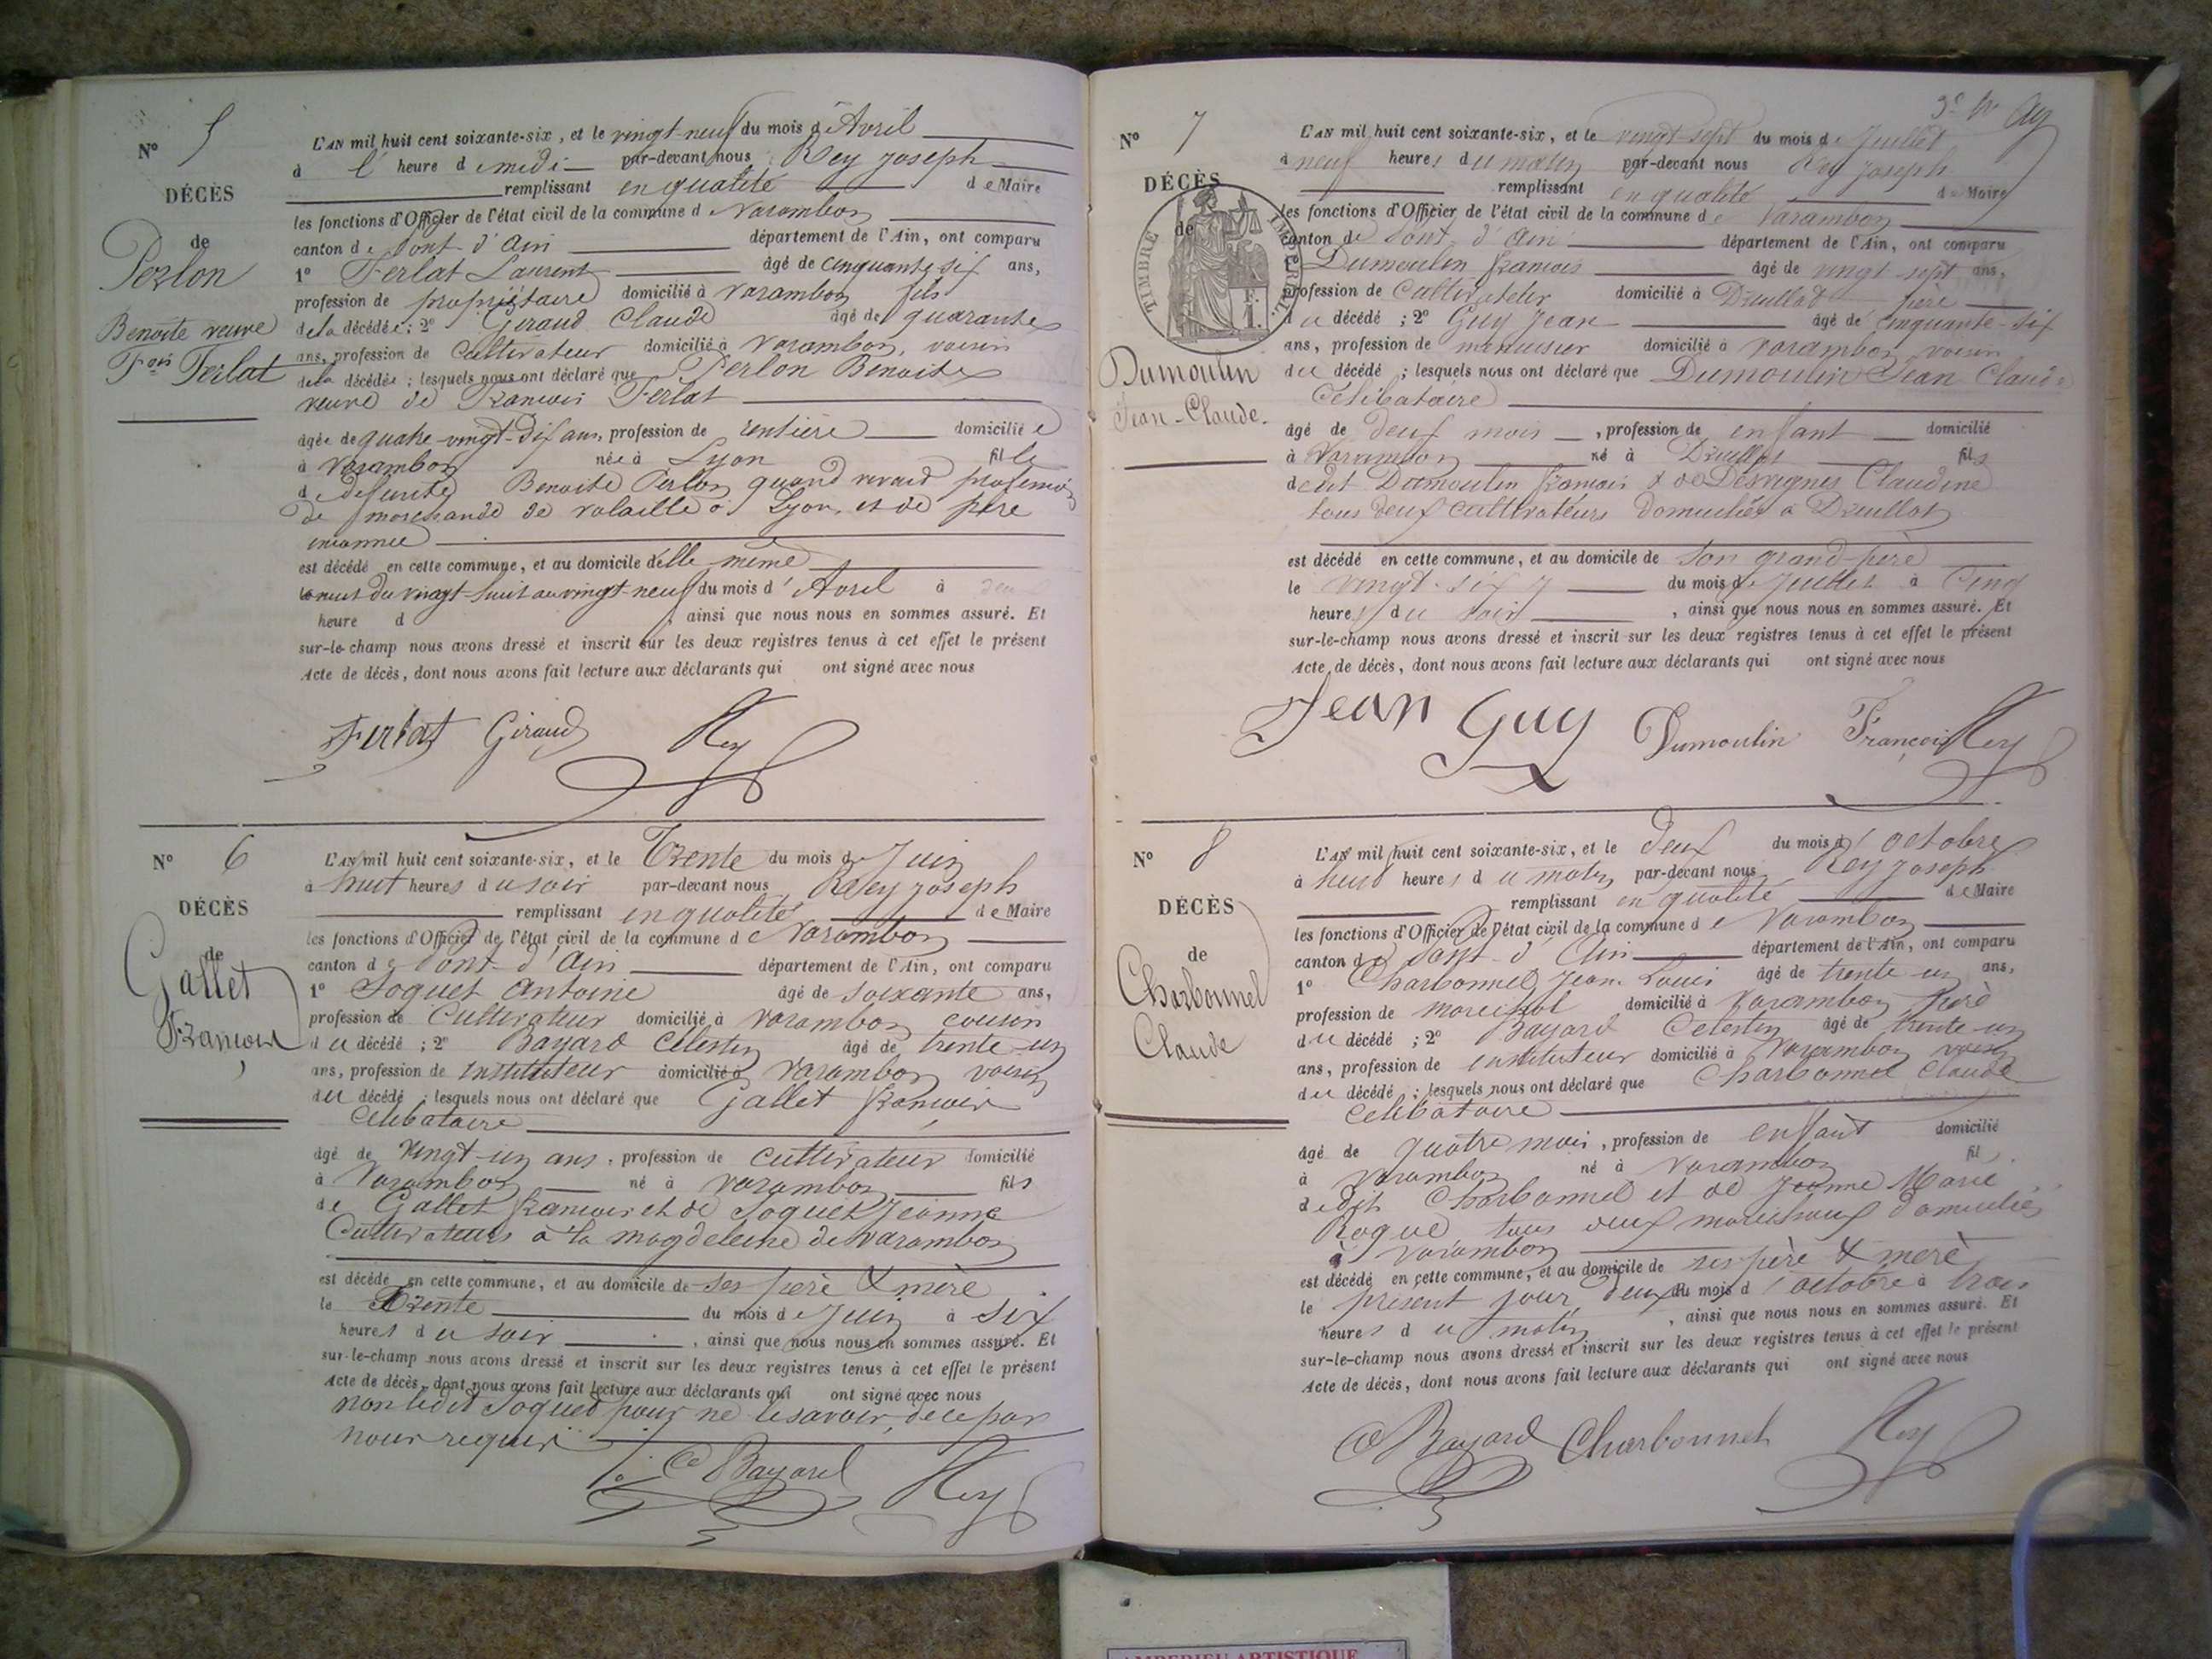 N° 5
DÉCÈS
de
Perlon
Benoite veuve
Fois Ferlat
L'AN mil huit cent soixante-six, et le vingt-neuf du mois d'Avril
à l' heure de midi par-devant nous Rey Joseph
remplissant en qualité de Maire
les fonctions d'Officier de l'état civil de la commune de Varambon
canton de Pont-d'Ain département de l'Ain, ont comparu
1° Ferlat Laurent âgé de cinquante six ans,
profession de propriétaire domicilié à Varambon fils
de la décédée ; 2° Giraud Claude âgé de quarante
ans, profession de cultivateur domicilié à Varambon, voisin
de la décédée ; lesquels nous ont déclaré que Perlon Benoite
veuve de François Ferlat
âgée de quatre-vingt-dix ans, profession de rentière domiciliée
à Varambon née à Lyon fille
de defunte Benoite Perlon quand vivait profession
de marchande de volaille à Lyon, et de père
inconnu
est décédé en cette commune, et au domicile d'elle même
la nuit du vingt-huit au vingt-neuf du mois d'Avril à
heure d , ainsi que nous nous en sommes assuré. Et
sur-le-champ nous avons dressé et inscrit sur les deux registres tenus à cet effet le présent
Acte de décès, dont nous avons fait lecture aux déclarants qui ont signé avec nous
Ferlat Giraud Rey
N° 6
DÉCÈS
de
Gallet
François
L'AN mil huit cent soixante-six, et le Trente du mois de Juin
à huit heures du soir par-devant nous Rey Joseph
remplissant en qualité de Maire
les fonctions d'Officier de l'état civil de la commune de Varambon
canton de Pont-d'Ain département de l'Ain, ont comparu
1° Soquet Antoine âgé de soixante ans,
profession de Cultivateur domicilié à Varambon cousin
du décédé ; 2° Bayard Célestin âgé de trente-un
ans, profession de instituteur domicilié à Varambon voisin
du décédé ; lesquels nous ont déclaré que Gallet François
célibataire
âgé de vingt-un ans, profession de cultivateur domicilié
à Varambon né à Varambon fils
de Gallet François et de Soquet Jeanne
Cultivateurs à la magdeleine de Varambon
est décédé en cette commune, et au domicile de ses père & mère
le Trente du mois de Juin à six
heures du soir , ainsi que nous nous en sommes assuré. Et
sur-le-champ nous avons dressé et inscrit sur les deux registres tenus à cet effet le présent
Acte de décès, dont nous avons fait lecture aux déclarants qui ont signé avec nous
non ledit Soquet pour ne le savoir, de ce par
nous requis
Ce Bayard Rey
N° 7
DÉCÈS
de
TIMBRE IMPÉRIAL
1 F.
Dumoulin
Jean-Claude.
L'AN mil huit cent soixante-six, et le vingt sept du mois de Juillet
à neuf heures du matin par-devant nous Rey Joseph
remplissant en qualité de Maire
les fonctions d'Officier de l'état civil de la commune de Varambon
canton de Pont-d'Ain département de l'Ain, ont comparu
Dumoulin François âgé de vingt-sept ans,
profession de Cultivateur domicilié à Druillat père
du décédé ; 2° Guy Jean âgé de cinquante-six
ans, profession de menuisier domicilié à Varambon voisin
du décédé ; lesquels nous ont déclaré que Dumoulin Jean Claude
Célibataire
âgé de deux mois, profession de enfant domicilié
à Varambon né à Druillat fils
dudit Dumoulin François & de Desvignes Claudine
tous deux cultivateurs domiciliés à Druillat
est décédé en cette commune, et au domicile de son grand-père
le vingt-six du mois de Juillet à cinq
heures du soir , ainsi que nous nous en sommes assuré. Et
sur-le-champ nous avons dressé et inscrit sur les deux registres tenus à cet effet le présent
Acte de décès, dont nous avons fait lecture aux déclarants qui ont signé avec nous
Jean Guy Dumoulin François Rey
N° 8
DÉCÈS
de
Charbonnel
Claude
L'AN mil huit cent soixante-six, et le deux du mois d'octobre
à huit heures du matin par-devant nous Rey Joseph
remplissant en qualité de Maire
les fonctions d'Officier de l'état civil de la commune de Varambon
canton de Pont-d'Ain département de l'Ain, ont comparu
1° Charbonnel Jean Louis âgé de trente-un ans,
profession de marechal domicilié à Varambon père
du décédé ; 2° Bayard Celestin âgé de trente-un
ans, profession de instituteur domicilié à Varambon voisin
du décédé ; lesquels nous ont déclaré que Charbonnel Claude
celibataire
âgé de quatre mois, profession de enfant domicilié
à Varambon né à Varambon fil
dudit Charbonnel et de Jeanne Marie
Rogue tous deux marechaux domiciliés
à Varambon
est décédé en cette commune, et au domicile de ses père & mère
le présent jour deux du mois d'octobre à trois
heures du matin , ainsi que nous nous en sommes assuré. Et
sur-le-champ nous avons dressé et inscrit sur les deux registres tenus à cet effet le présent
Acte de décès, dont nous avons fait lecture aux déclarants qui ont signé avec nous
Ce Bayard Charbonnel Rey
AMPERIEU ARTISTIQUE